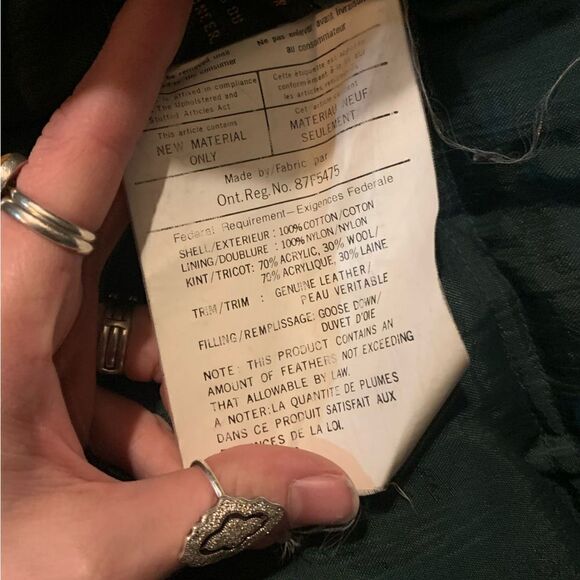 Ne pas enlever avant livraison
au consommateur
in compliance
The Upholstered and
Stuffed Articles Act
Cette étiquette est apposée
conformément à la loi sur
les articles
This article contains
NEW MATERIAL
ONLY
Cet article contient
MATÉRIAU NEUF
SEULEMENT
Made by/Fabric par
Ont.Reg.No. 87F5475
Federal Requirement—Exigences Federale
SHELL/EXTERIEUR : 100% COTTON/COTON
LINING/DOUBLURE : 100% NYLON/NYLON
KINT/TRICOT: 70% ACRYLIC, 30% WOOL/
70% ACRYLIQUE, 30% LAINE
TRIM/TRIM : GENUINE LEATHER/
PEAU VERITABLE
FILLING/REMPLISSAGE: GOOSE DOWN/
DUVET D'OIE
NOTE: THIS PRODUCT CONTAINS AN
AMOUNT OF FEATHERS NOT EXCEEDING
THAT ALLOWABLE BY LAW.
A NOTER: LA QUANTITE DE PLUMES
DANS CE PRODUIT SATISFAIT AUX
DE LA LOI.